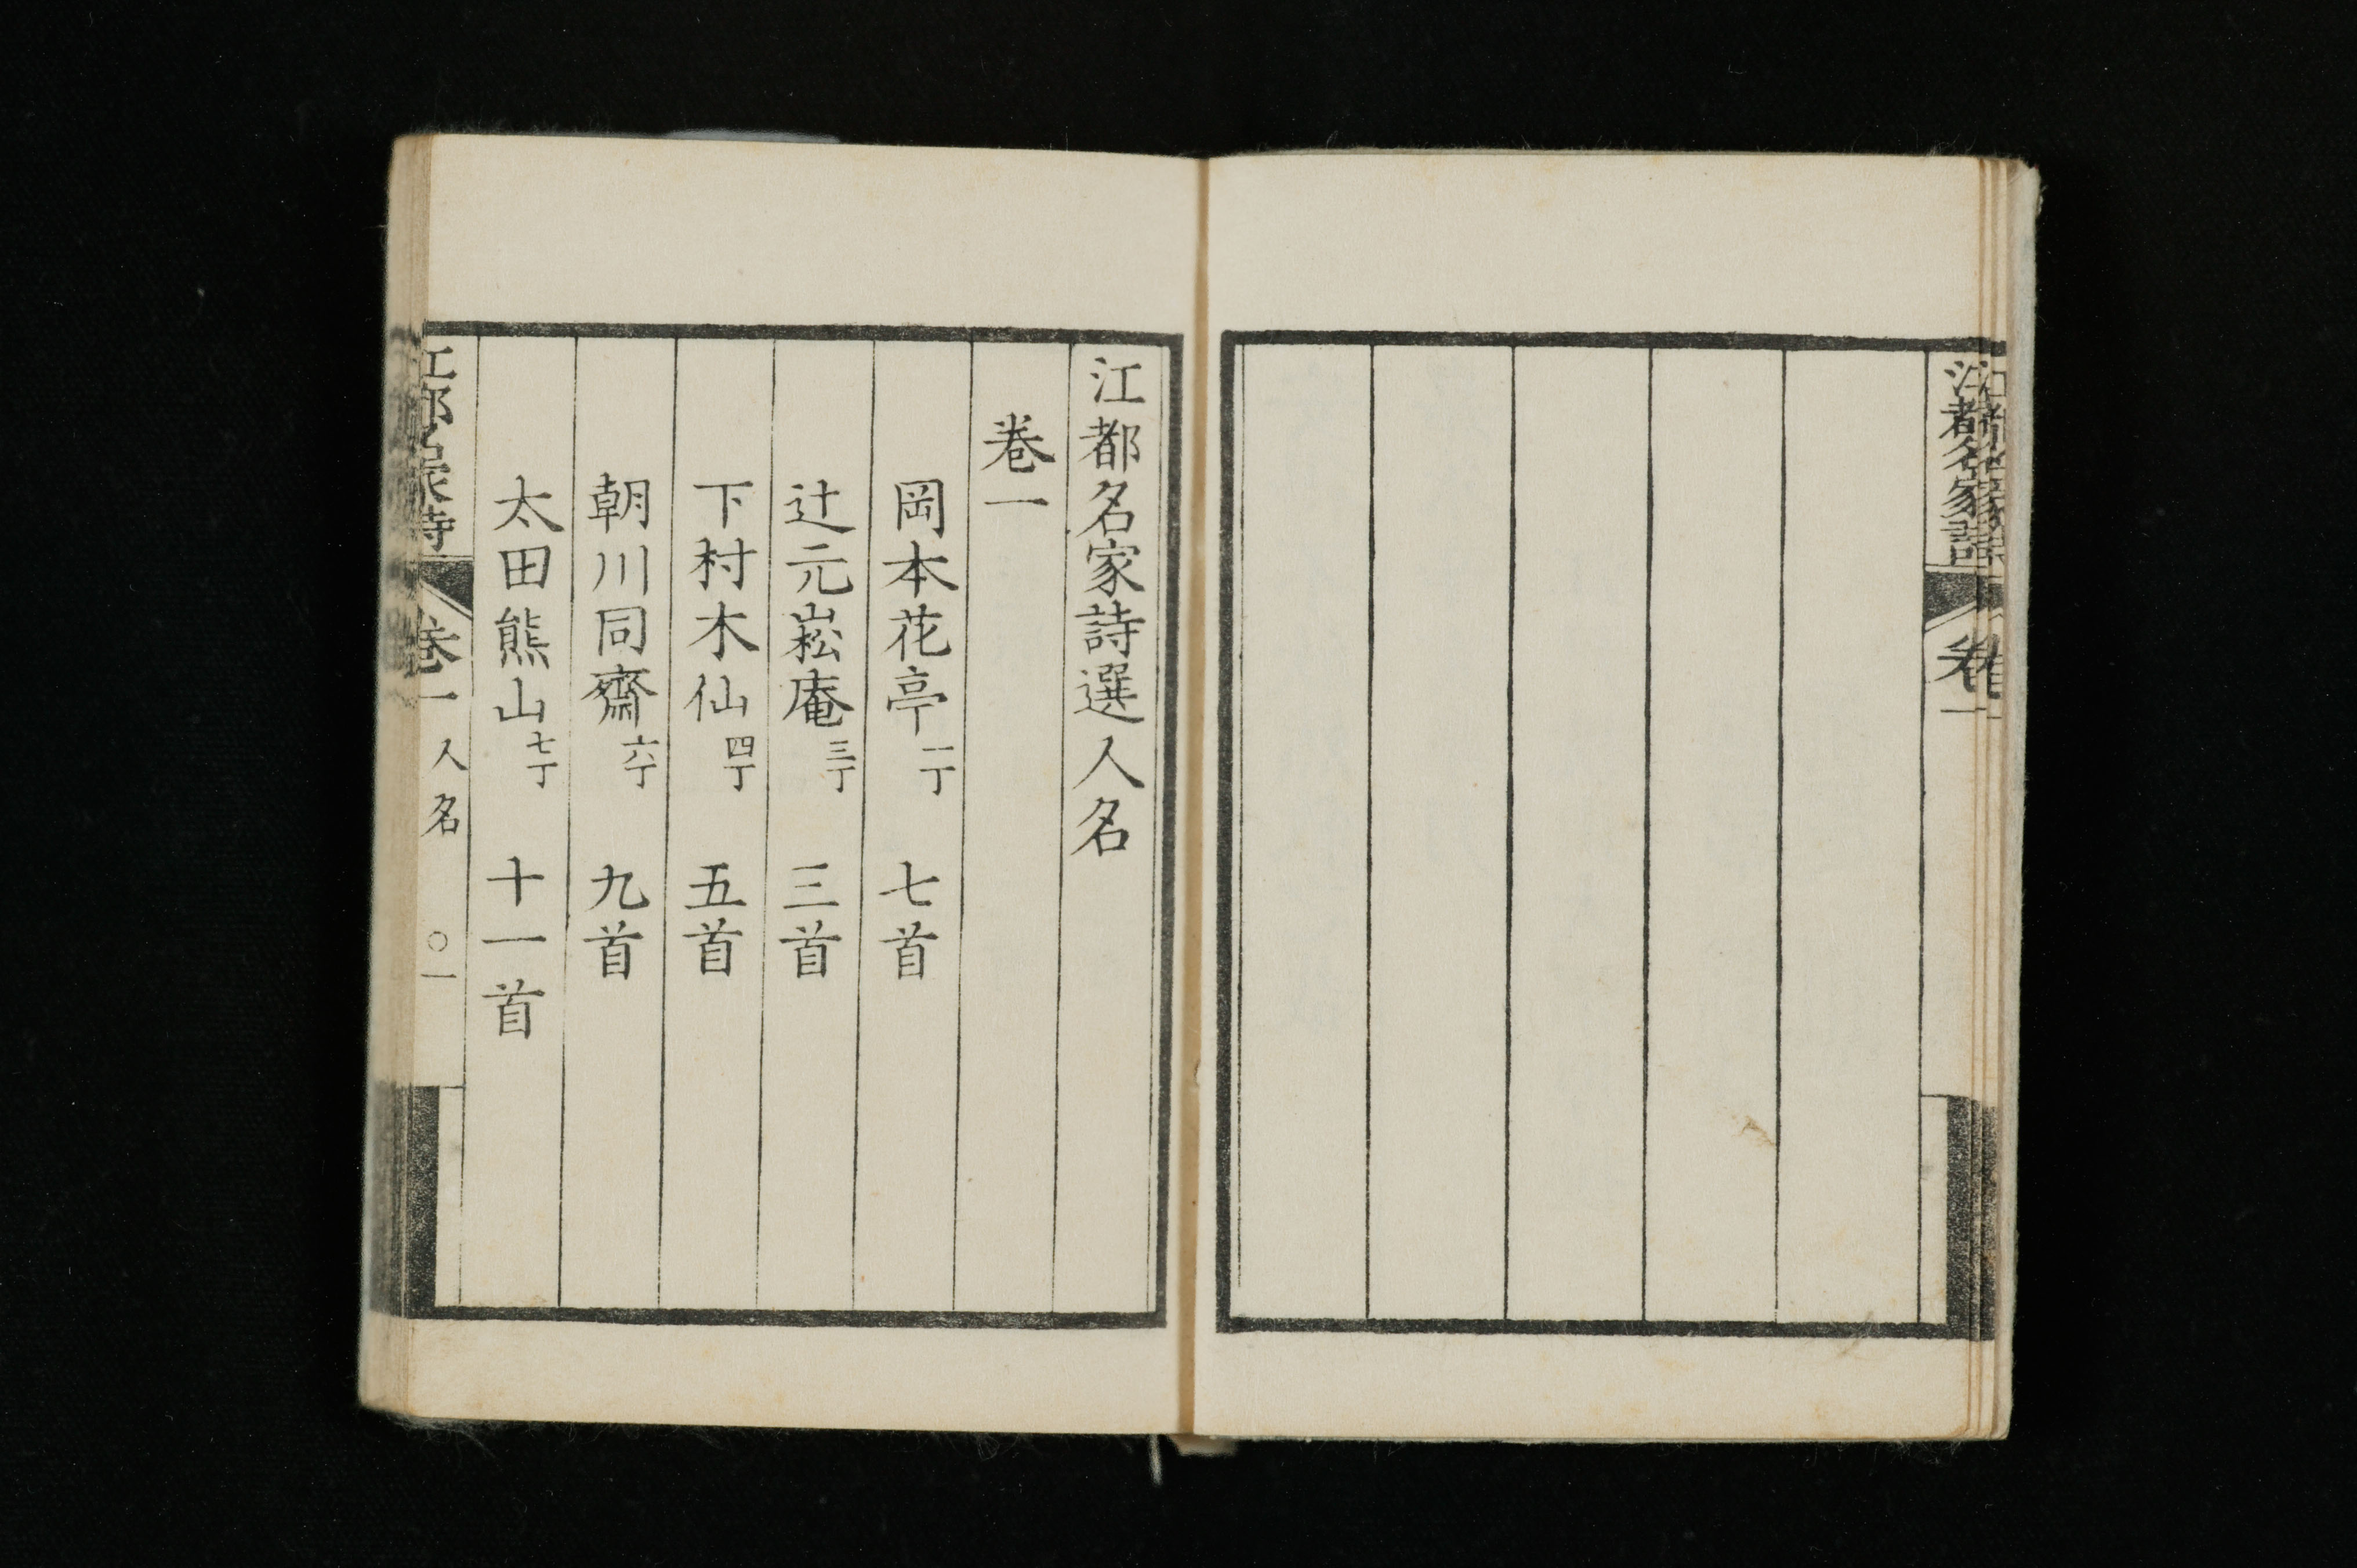 江都名家詩
卷一
江都名家詩選人名
卷一
岡本花亭 一丁 七首
辻元崧庵 三丁 三首
下村木仙 四丁 五首
朝川同齋 六丁 九首
太田熊山 七丁 十一首
江都名家詩
卷一 人名 〇一